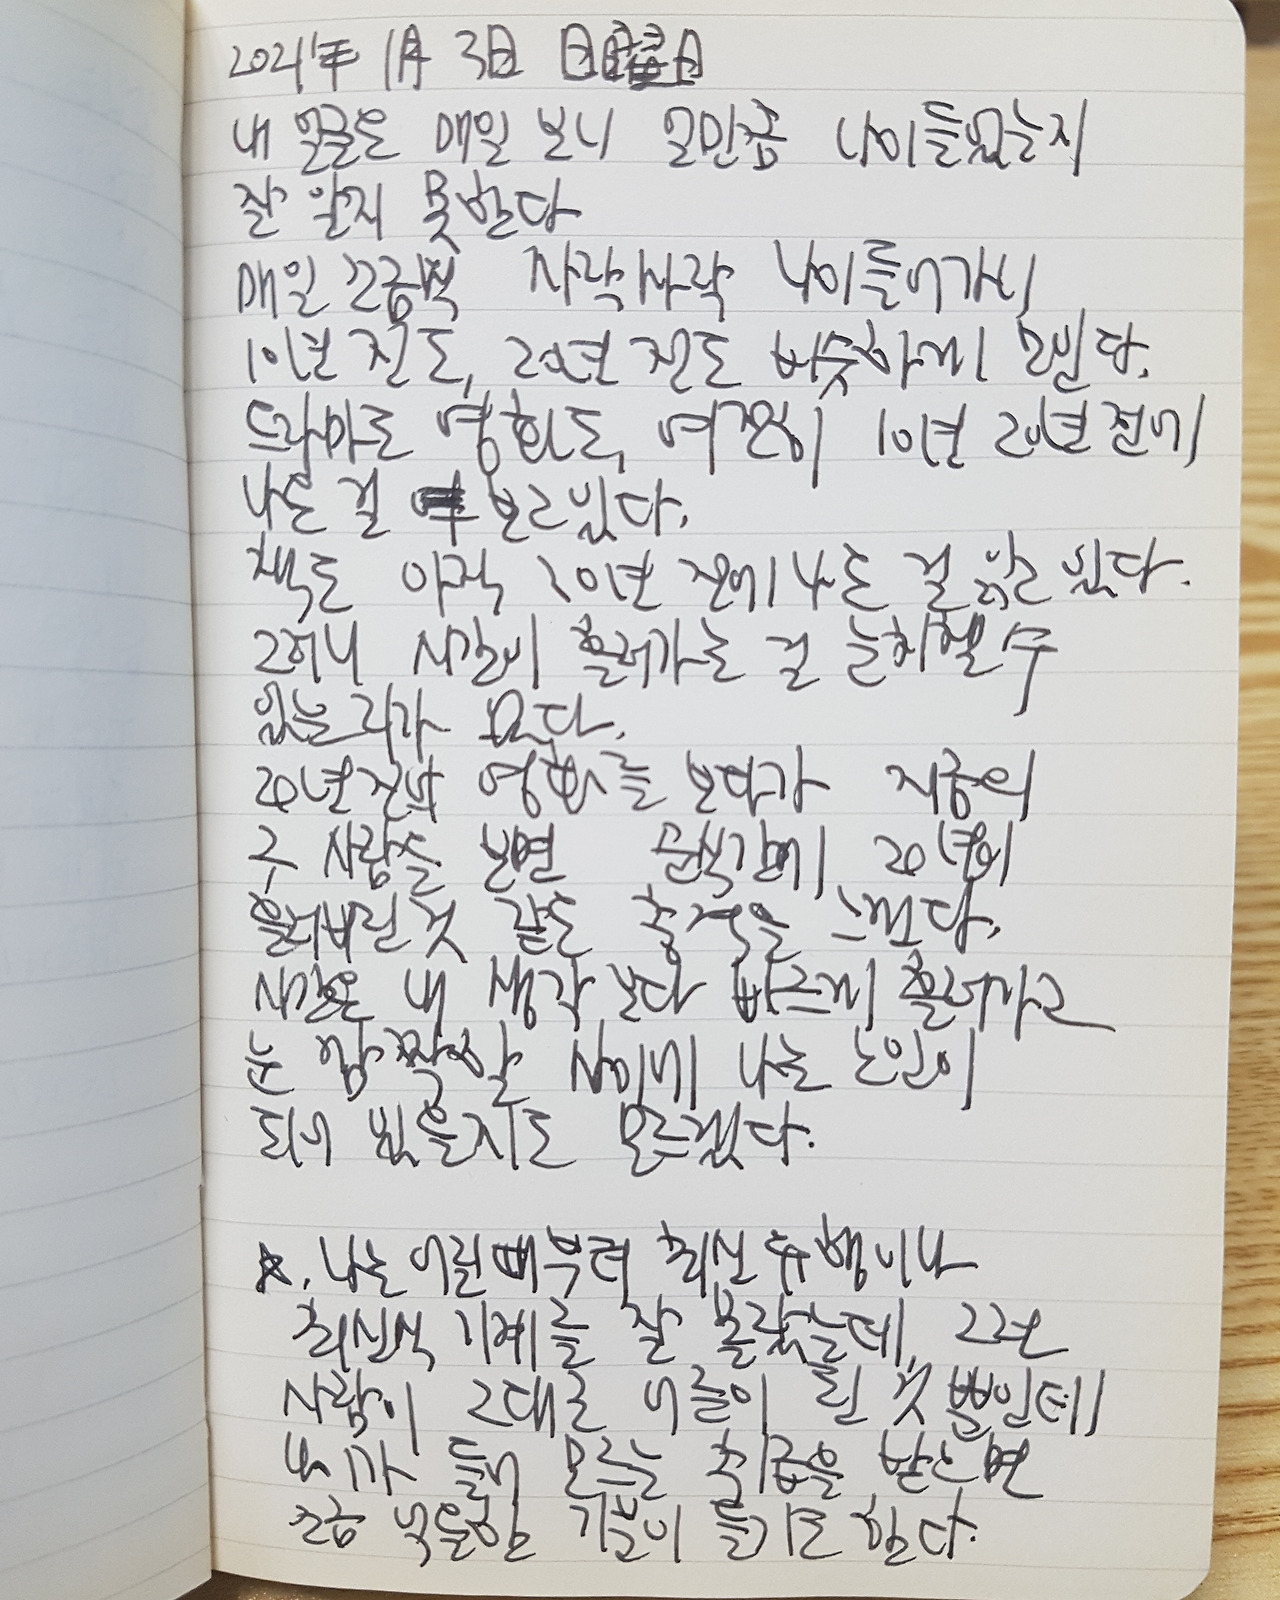 2021年 1月 3日 日曜日
내 얼굴은 매일 보니 얼만큼 나이들었는지
잘 알지 못한다
매일 조금씩 사락사락 나이들어가니
10년 전도, 20년 전도 비슷하게 보인다.
드라마도 영화도, 여전히 10년 20년 전에
나온 걸 보고있다.
책도 아직 20년 전에 나온 걸 읽고 있다.
그러니 시간이 흘러가는 걸 눈치챌 수
있는리가 없다.
20년전의 영화를 보다가 지금의
그 사람을 보면 순식간에 20년이
흘러버린 것 같은 충격을 느낀다.
시간은 내 생각 보다 빠르게 흘러가고
눈 깜짝할 사이에 나는 노인이
되어 있을지도 모르겠다.
☆. 나는 어릴때부터 최신 유행이나
최신식 기계를 잘 몰랐는데, 그런
사람이 그대로 어른이 된 것 뿐인데
내가 늙어 모르는 취급을 받으면
조금 억울한 기분이 들기도 한다.